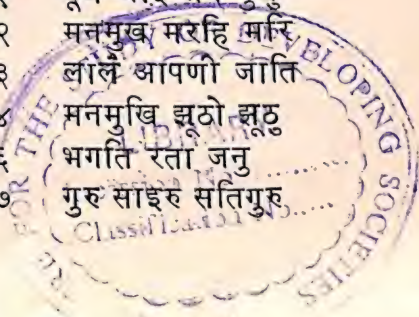 २ मनमुख मरहि मरि
३ लालै आपणी जाति
४ मनमुखि झूठो झूठु
६ भगति रता जनु
७ गुरु साइरु सतिगुरु
FOR THE DEVELOPING SOCIETIES
LIBRARY
Classification No.